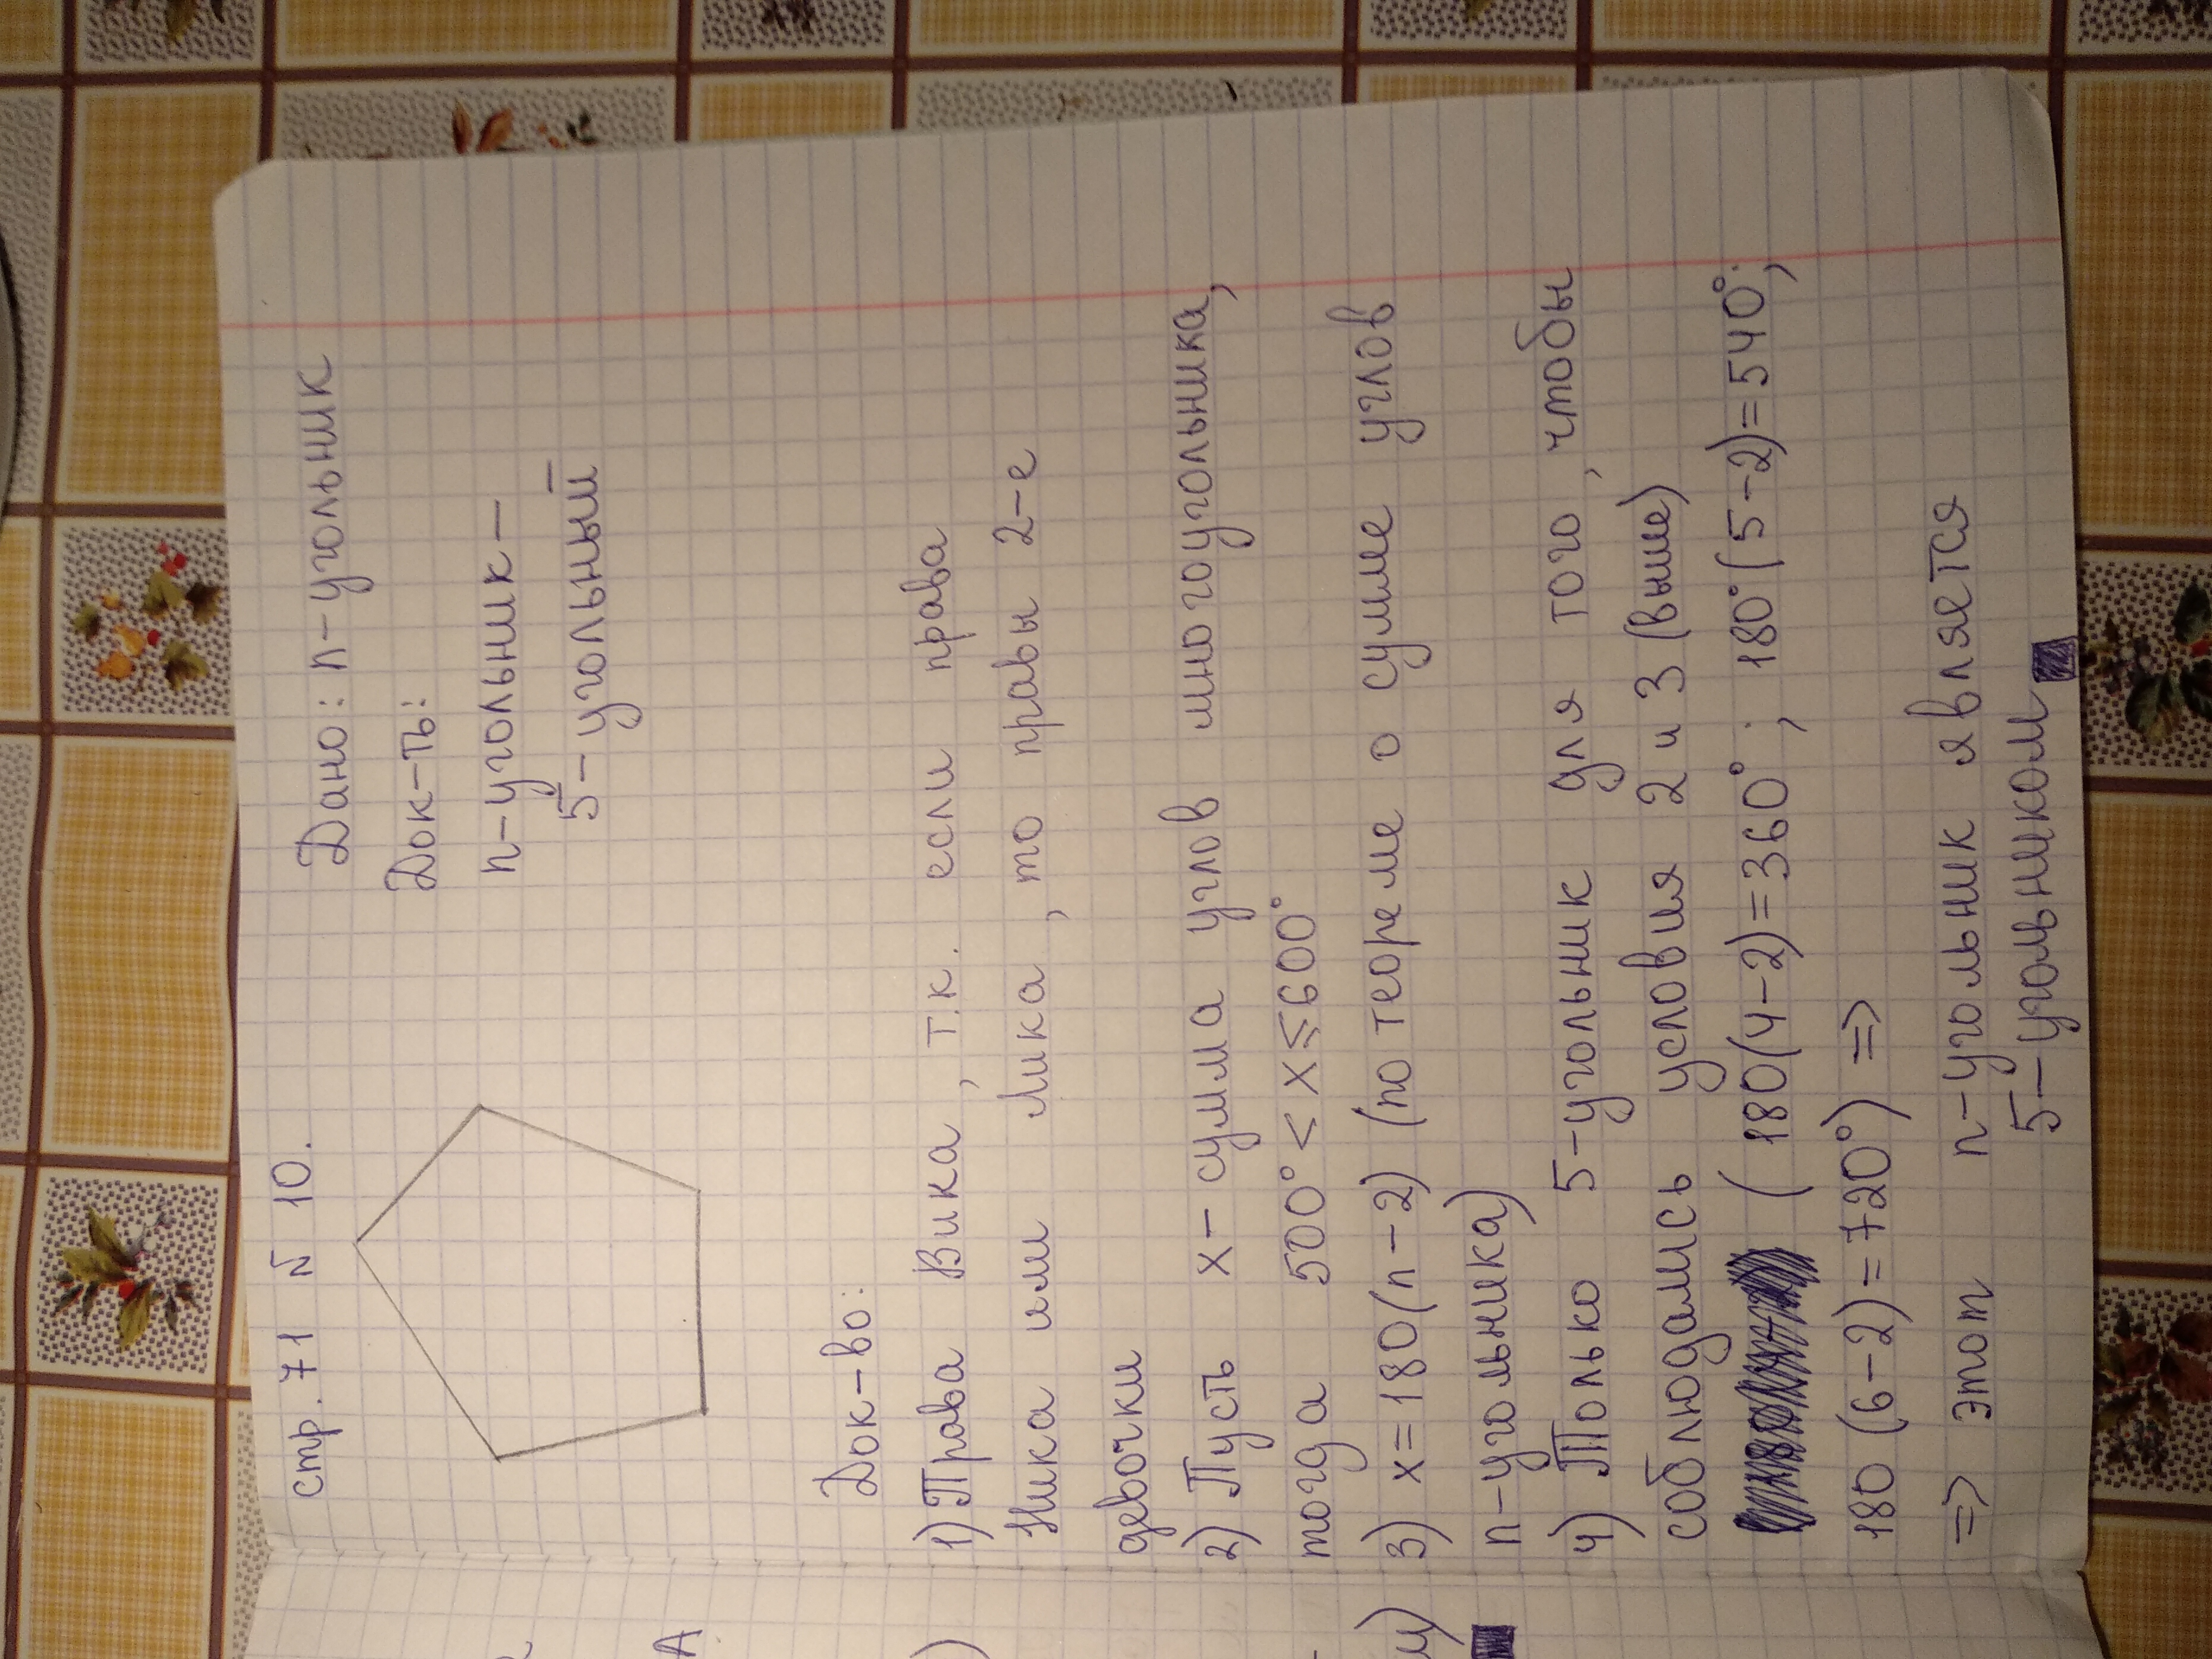 стр. 71 N 10.
Дано: n-угольник
Док-ть:
n-угольник —
5-угольный
Док-во:
1) Права Вика, т.к. если права
Ника или Лика, то правы 2-е
девочки
2) Пусть x - сумма углов многоугольника,
тогда 500° < x ≤ 600°
3) x = 180(n-2) (по теореме о сумме углов
n-угольника)
4) Только 5-угольник для того, чтобы
соблюдались условия 2 и 3 (выше)
(180(4-2)=360°; 180°(5-2)=540°;
180(6-2)=720°) =>
=> этот n-угольник является
5-угольником
A
)
и)